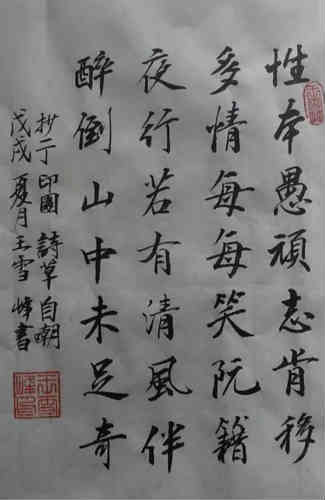 性本愚頑志肯移
多情每每笑阮籍
夜行若有清風伴
醉倒山中未足奇
抄于印園詩草自嘲
戊戌夏月王雪峰書